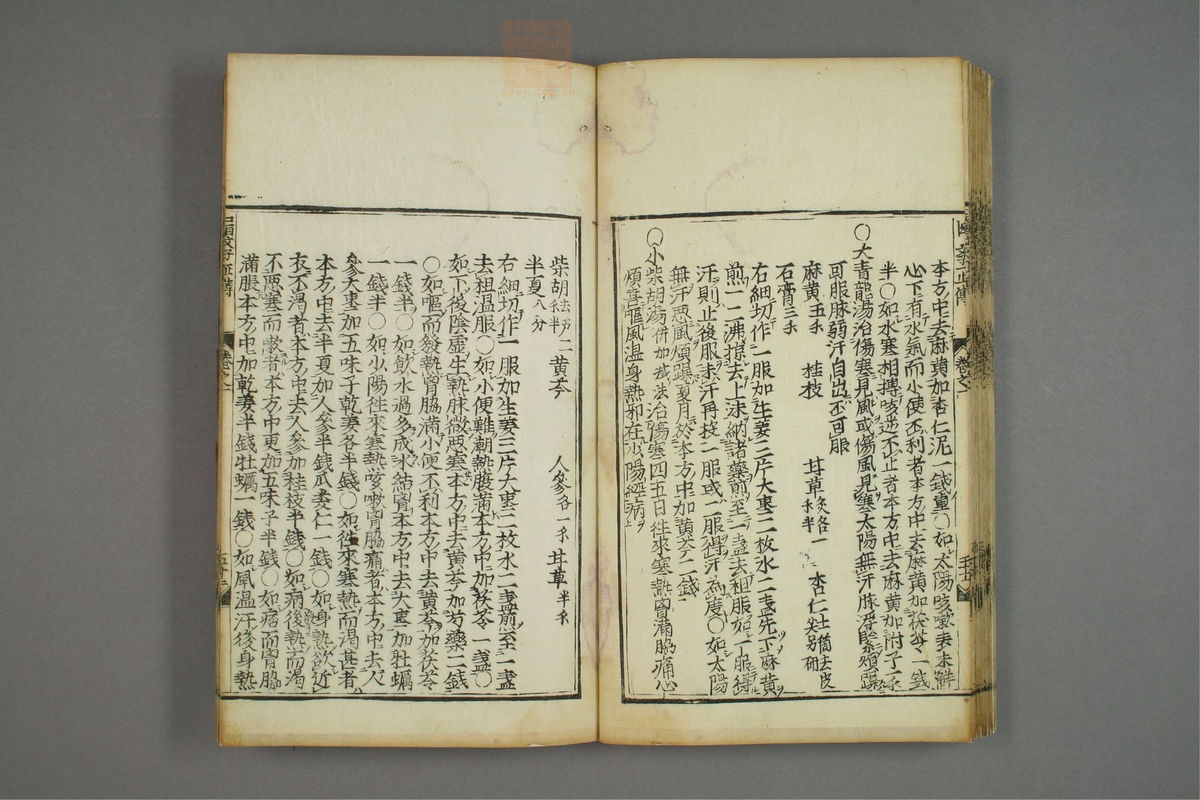 本方中去麻黄加杏仁泥一錢重○如太陽咳嗽表未解
心下有水氣而小便不利者本方中去麻黄加茯苓一錢
半○如水寒相搏咳逆不止者本方中去麻黄加附子一
○大青龍湯治傷寒見風或傷風見寒太陽無汗脉浮緊煩躁
可服脉弱汗自出不可服
麻黄五 桂枝 甘草炙各一 半 杏仁 去皮尖另研
石膏三
右細切作一服加生姜三片大棗二枚水二盞先下麻黄
煎一二沸掠去上沫納諸藥煎至一盞去柤服如一服得
汗則止後服未汗再投一服或二服得汗為度○如太陽
無汗惡風煩躁夏月於本方中加黄芩二錢
○小柴胡湯併加减法治傷寒四五日往來寒熱胷滿脇痛心
煩喜嘔風温身熱邪在少陽經病
柴胡去芦二 半 黄芩 人參各一 甘草半
半夏八分
右細切作一服加生姜三片大棗二枚水二盞煎至一盞
去柤温服○如小便難潮熱腹滿本方中加茯苓一盞○
如下後陰虚生熱脉微惡寒本方中去黄芩加芍藥二錢
○如嘔而發熱胷脇滿小便不利本方中去黄芩加茯苓
一錢半○如飲水過多成水結胷本方中去大棗加牡蠣
一錢半○如少陽往來寒熱咳嗽胷脇痛者本方中去人
參大棗加五味子乾姜各半錢○如往來寒熱而渴甚者
本方中去半夏加人參半錢瓜蔞仁一錢○如身熱欲近
衣不渴者本方中去人參加桂枝半錢○如病後熱而渴
不惡寒而嗽者本方中更加五味子半錢○如痞而胷脇
滿脹本方中加乾姜半錢牡蠣一錢○如風温汗後身熱